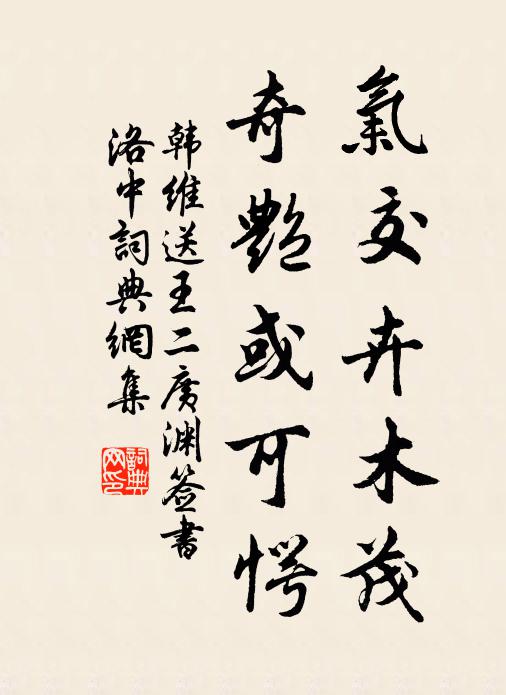 氣交卉木茂
奇艷或可愕
韩維送王二廣渊簽書
洛中詞典網集
詞典网印